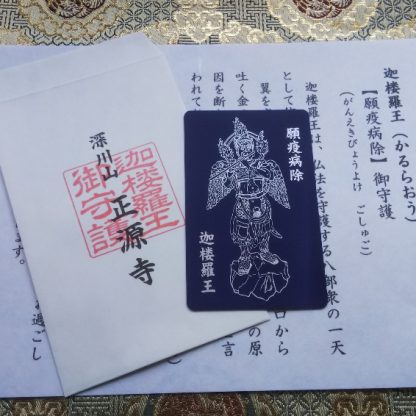 迦楼羅王（かるらおう）
【願疫病除】御守護
（がんえきびょうよけ ごしゅご）
迦楼羅王は、仏法を守護する八部衆の一天
として
翼を
口から
吐く金
の原
因を断
言
われて
過ごし
ます。
願疫病除
迦楼羅王
深川山 正源寺
迦楼羅王
御守護